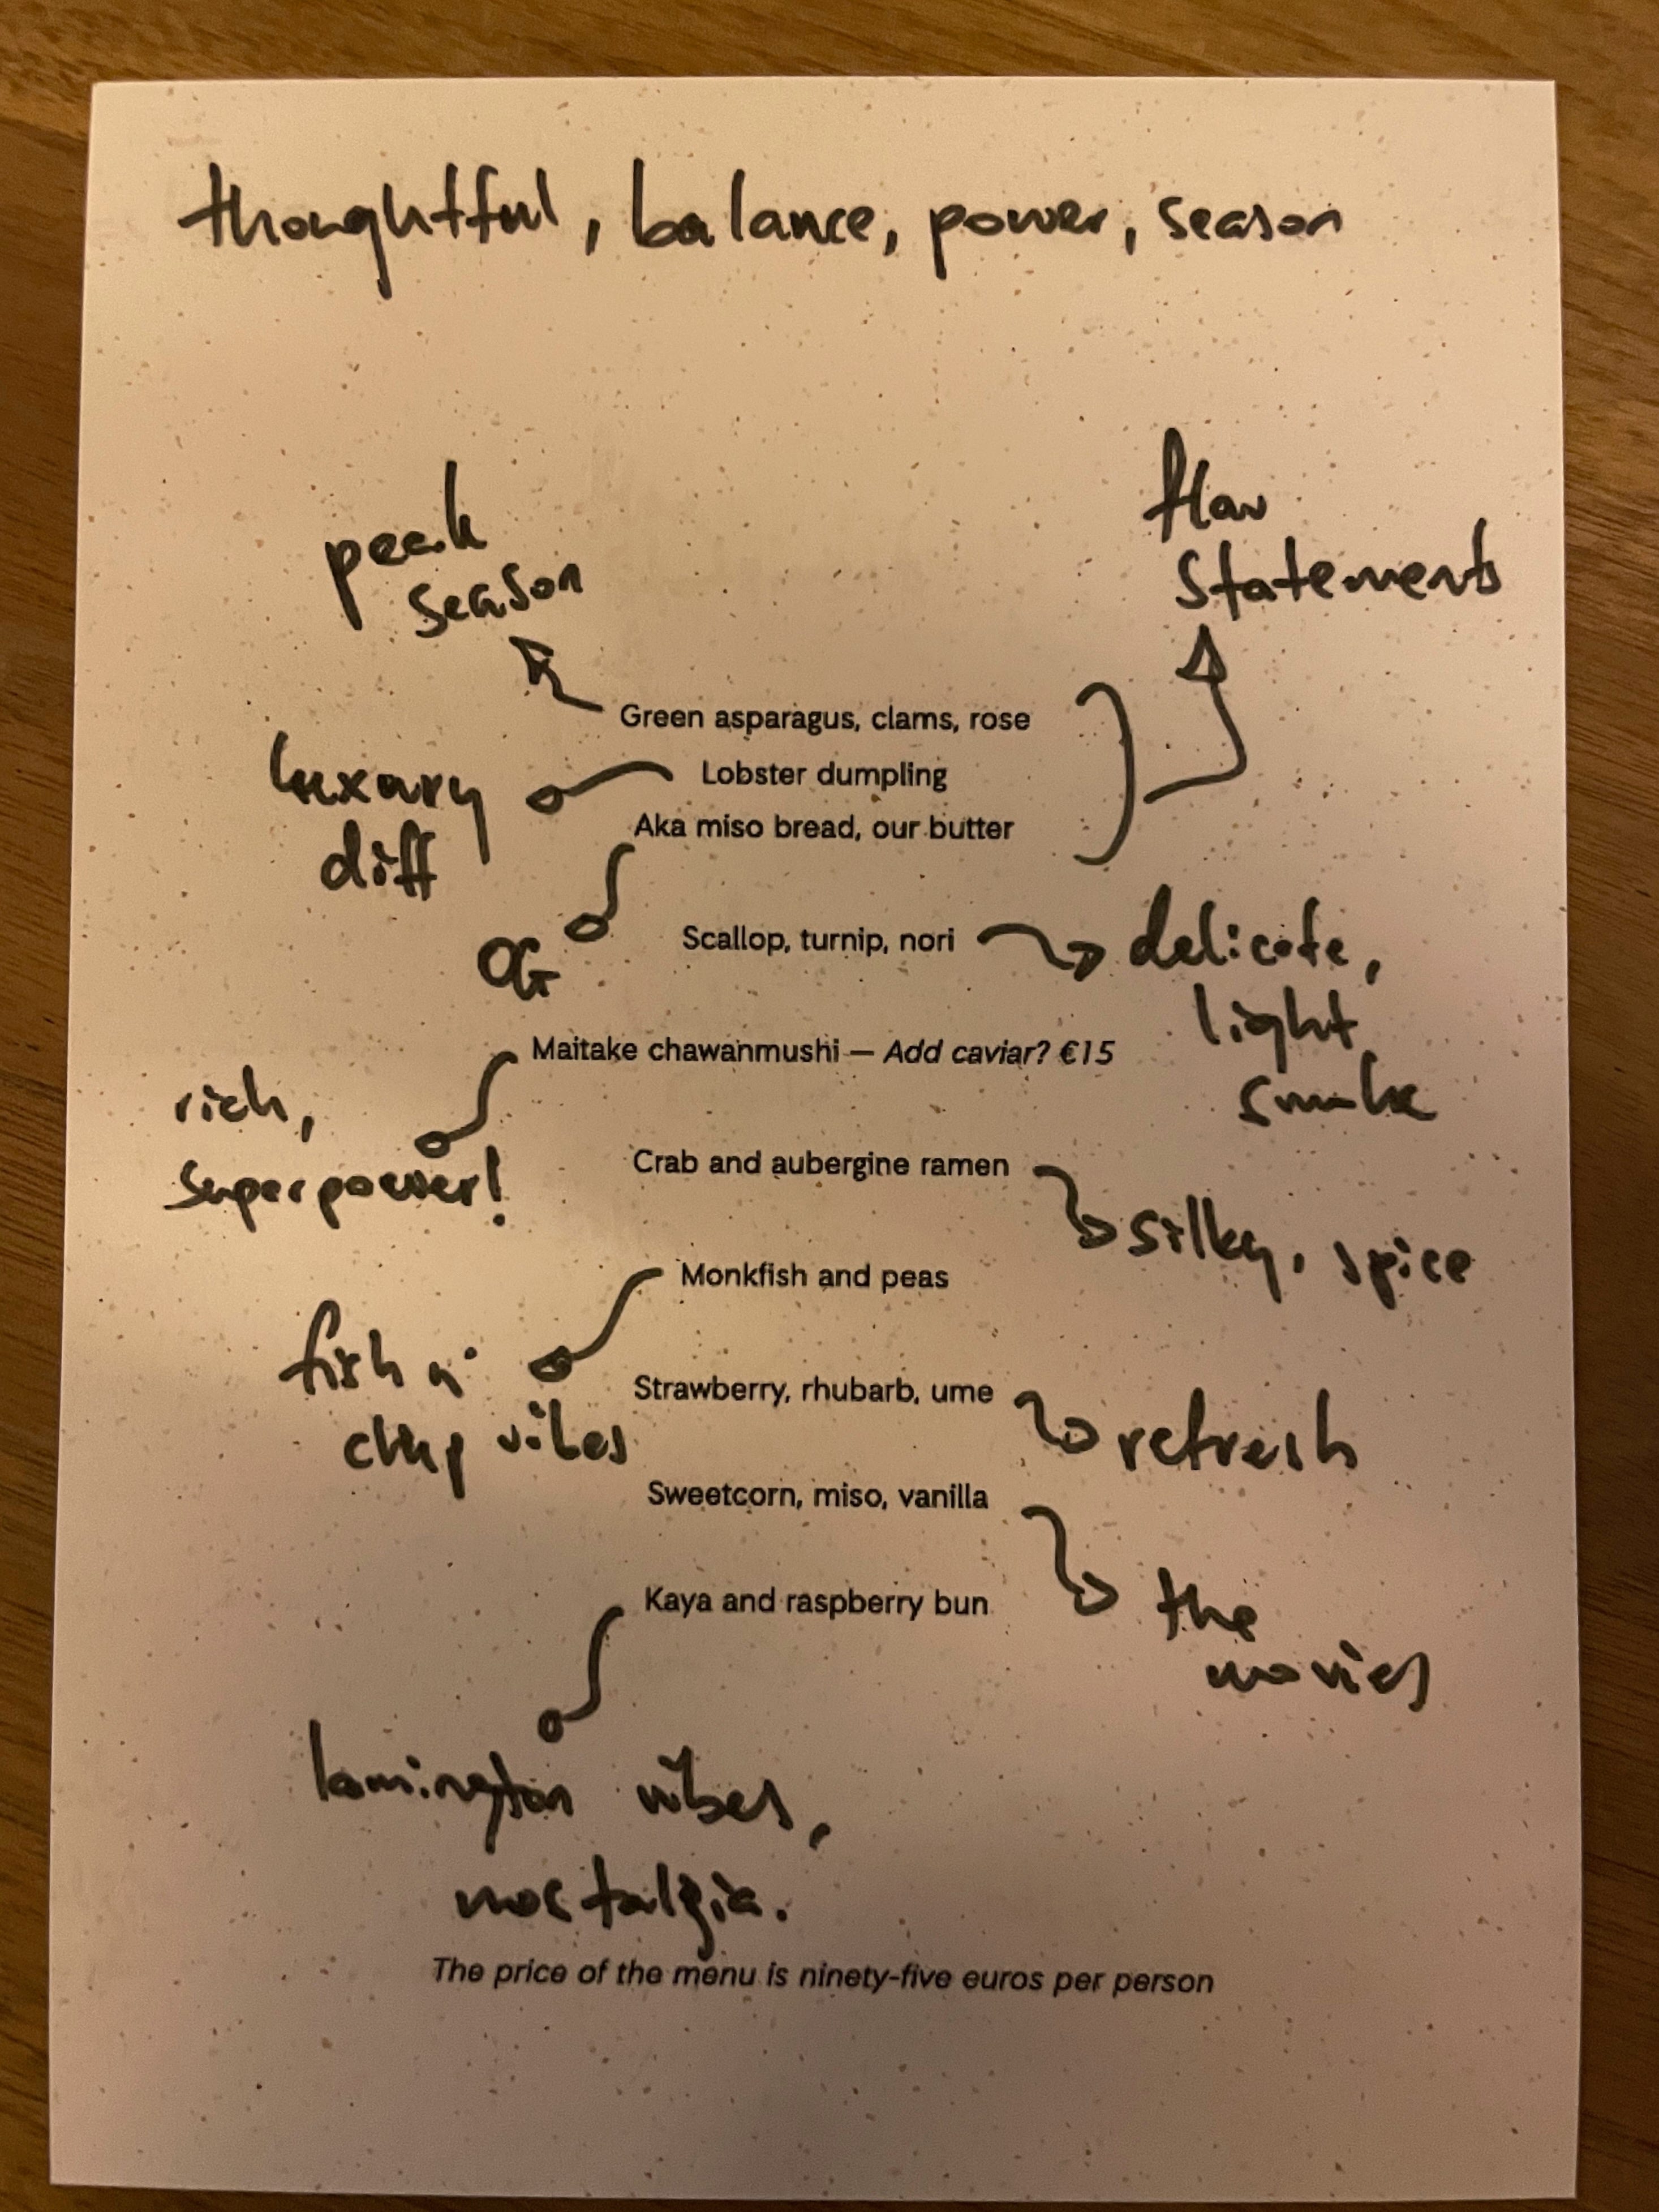 thoughtful, balance, power, season
peak
season
flav
statements
Green asparagus, clams, rose
luxury
diff
Lobster dumpling
Aka miso bread, our butter
OG
Scallop, turnip, nori
delicate,
light
smoke
Maitake chawanmushi — Add caviar? €15
rich,
superpower!
Crab and aubergine ramen
silky, spice
Monkfish and peas
fish n'
chip vibes
Strawberry, rhubarb, ume
refresh
Sweetcorn, miso, vanilla
the
movies
Kaya and raspberry bun
lamington vibes,
nostalgia.
The price of the menu is ninety-five euros per person